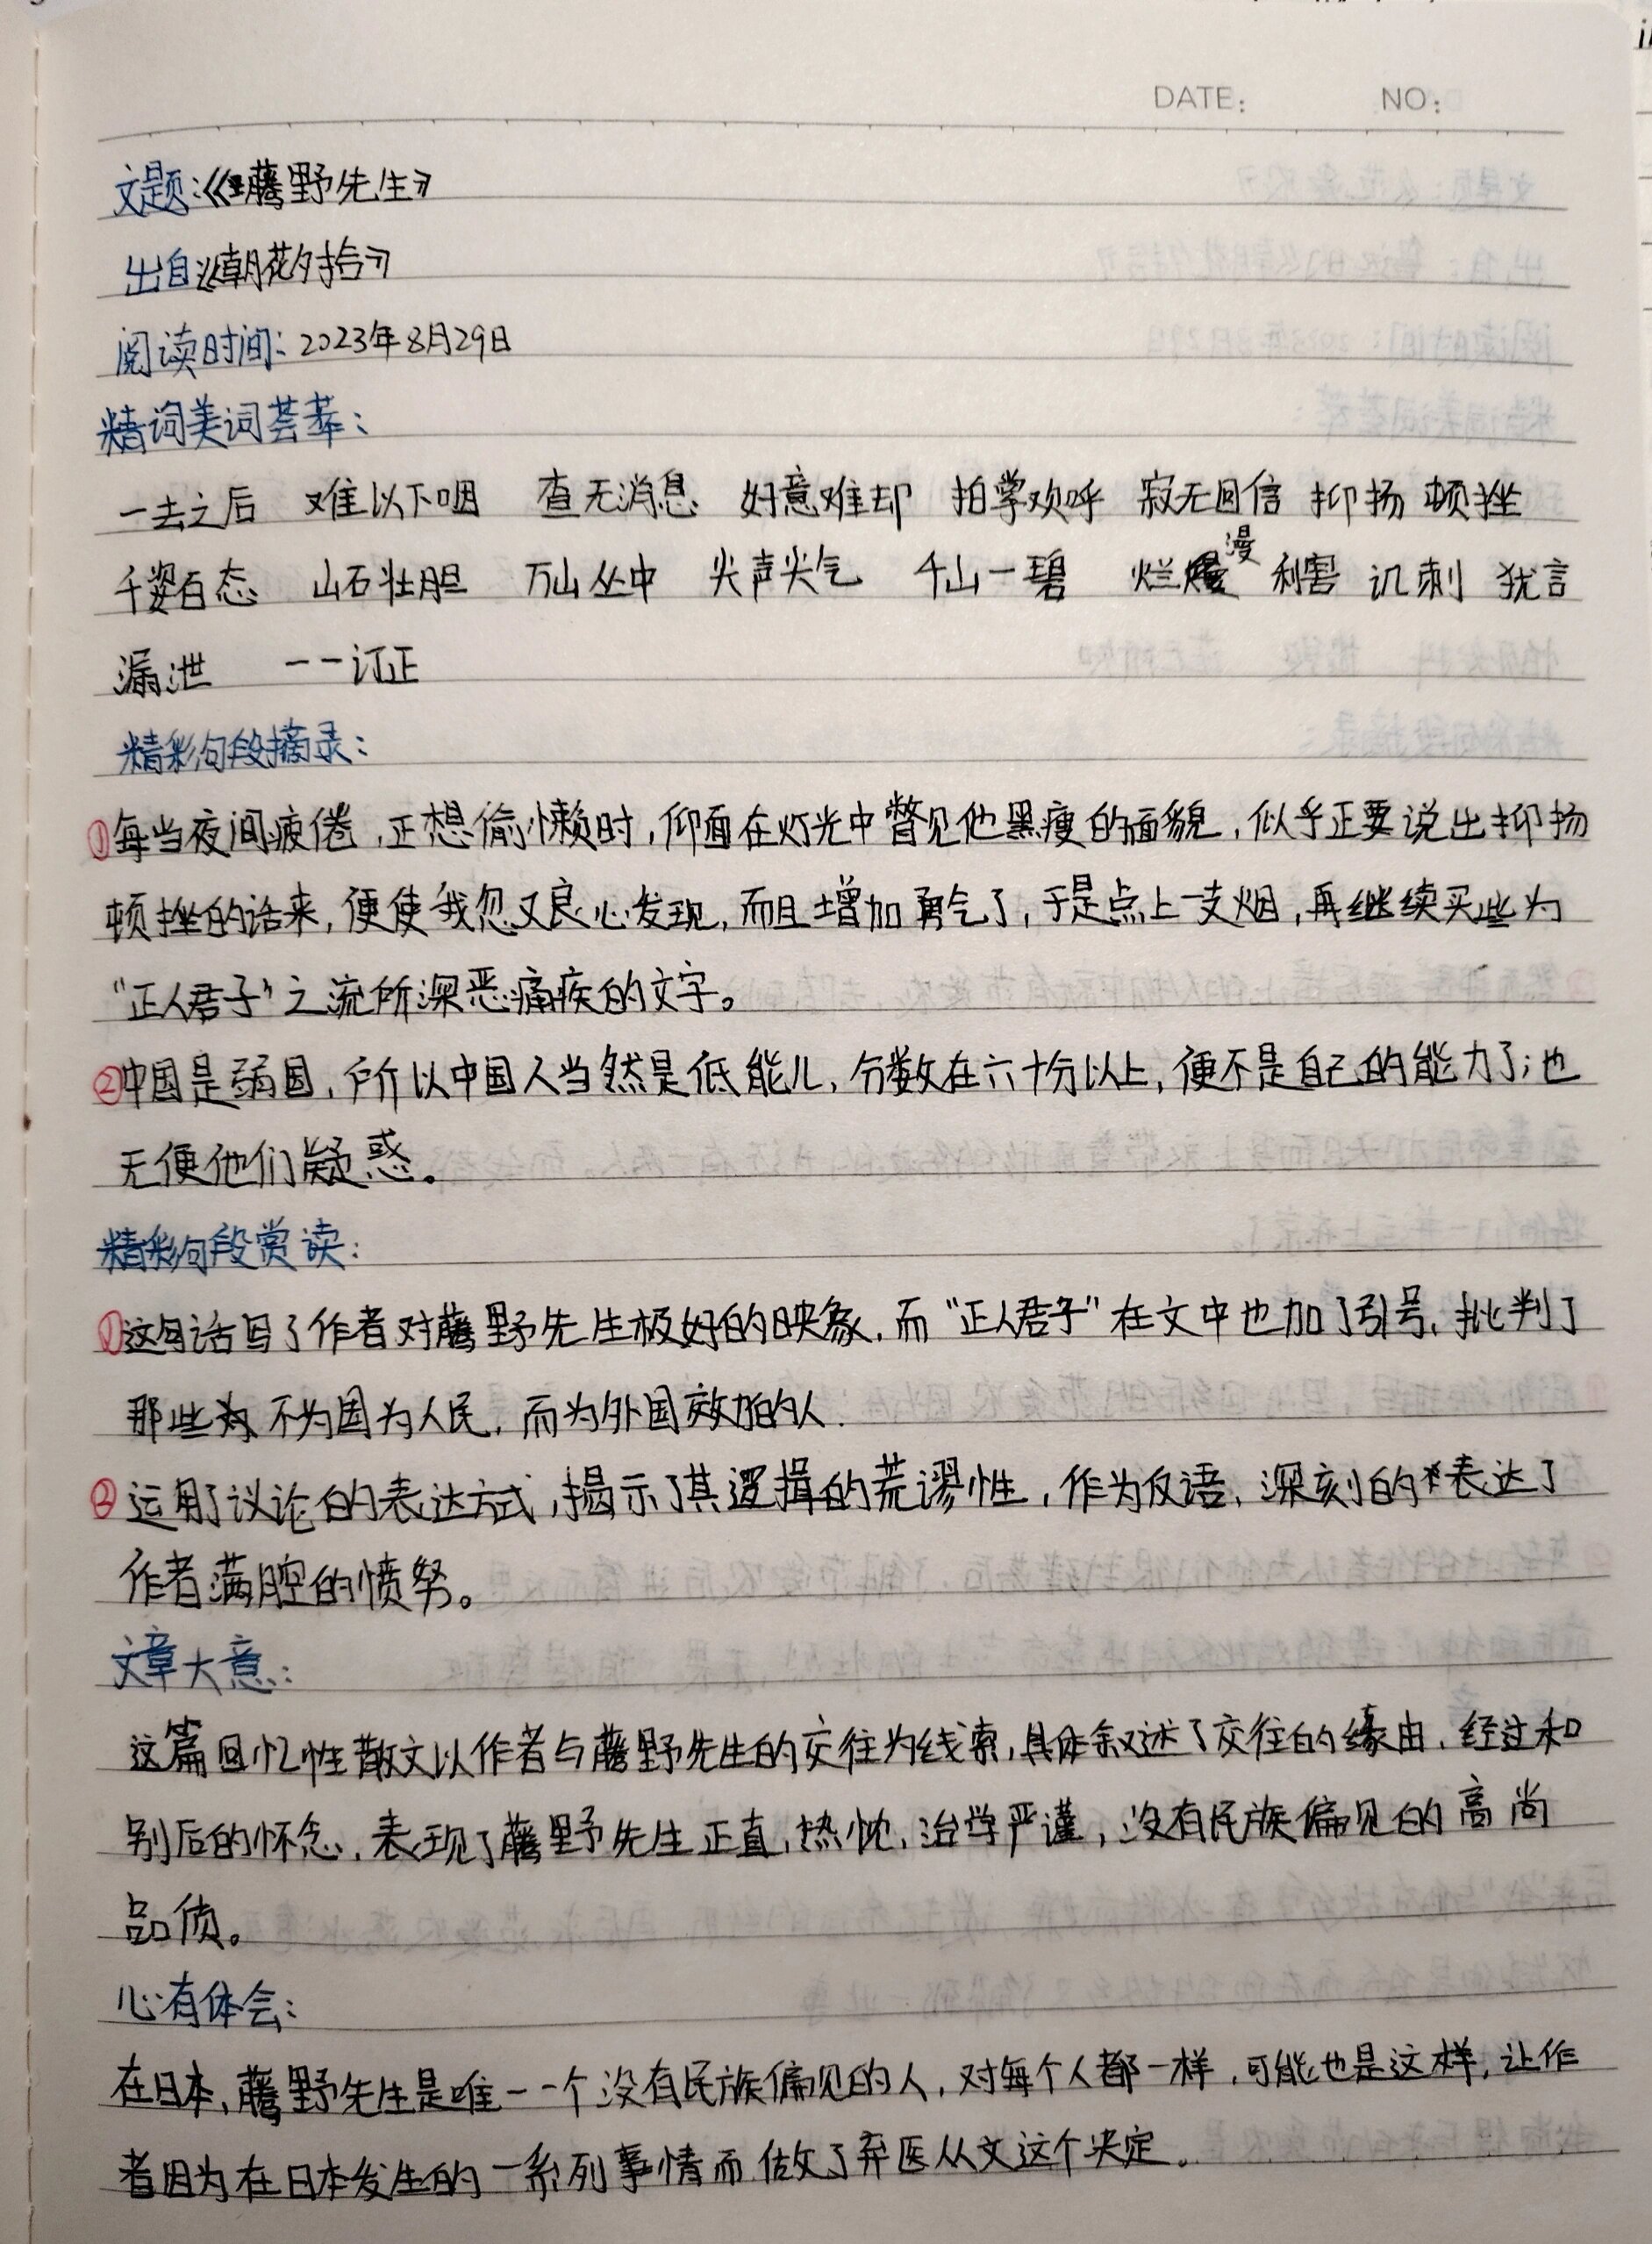 DATE: NO:
文题:《藤野先生》
出自《朝花夕拾》
阅读时间: 2023年8月29日
精词美词荟萃:
一去之后 难以下咽 查无消息 好意难却 拍掌欢呼 寂无回信 抑扬顿挫
千姿百态 山石壮胆 万山丛中 尖声尖气 千山一碧 烂漫 利害 讥刺 犹言
漏泄 一一订正
精彩句段摘录:
①每当夜间疲倦,正想偷懒时,仰面在灯光中瞥见他黑瘦的面貌,似乎正要说出抑扬
顿挫的话来,便使我忽又良心发现,而且增加勇气了,于是点上一支烟,再继续买些为
“正人君子”之流所深恶痛疾的文字。
②中国是弱国,所以中国人当然是低能儿,分数在六十分以上,便不是自己的能力了;也
无便他们疑惑。
精彩句段赏读:
①这句话写了作者对藤野先生极好的映象,而“正人君子”在文中也加了引号,批判了
那些不为国为人民,而为外国效劳的人.
②运用了议论的表达方式,揭示了其逻辑的荒谬性,作为反语,深刻的表达了
作者满腔的愤努。
文章大意:
这篇回忆性散文以作者与藤野先生的交往为线索,具体叙述了交往的缘由,经过和
别后的怀念,表现了藤野先生正直,热忱,治学严谨,没有民族偏见的高尚
品质。
心有体会:
在日本,藤野先生是唯一一个没有民族偏见的人,对每个人都一样,可能也是这样,让作
者因为在日本发生的一系列事情而做了弃医从文这个决定。